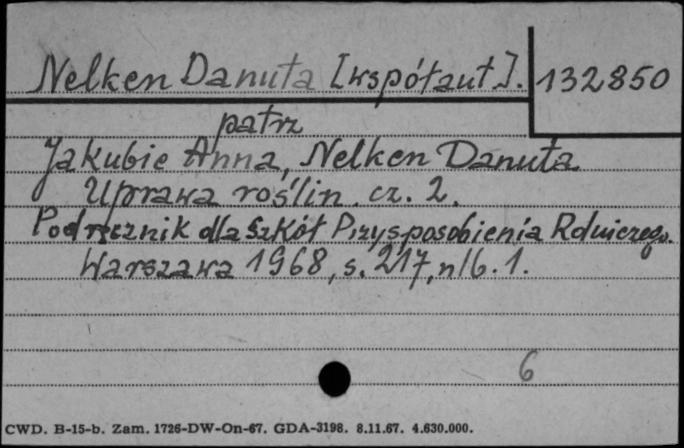 Nelken Danuta [współaut]. 132850
patrz
Jakubie Anna, Nelken Danuta
Uprawa roślin. cz. 2.
Podręcznik dla Szkół Przysposobienia Rolniczego.
Warszawa 1968, s. 217, nlb. 1.
6
CWD. B-15-b. Zam. 1726-DW-On-67. GDA-3198. 8.11.67. 4.630.000.